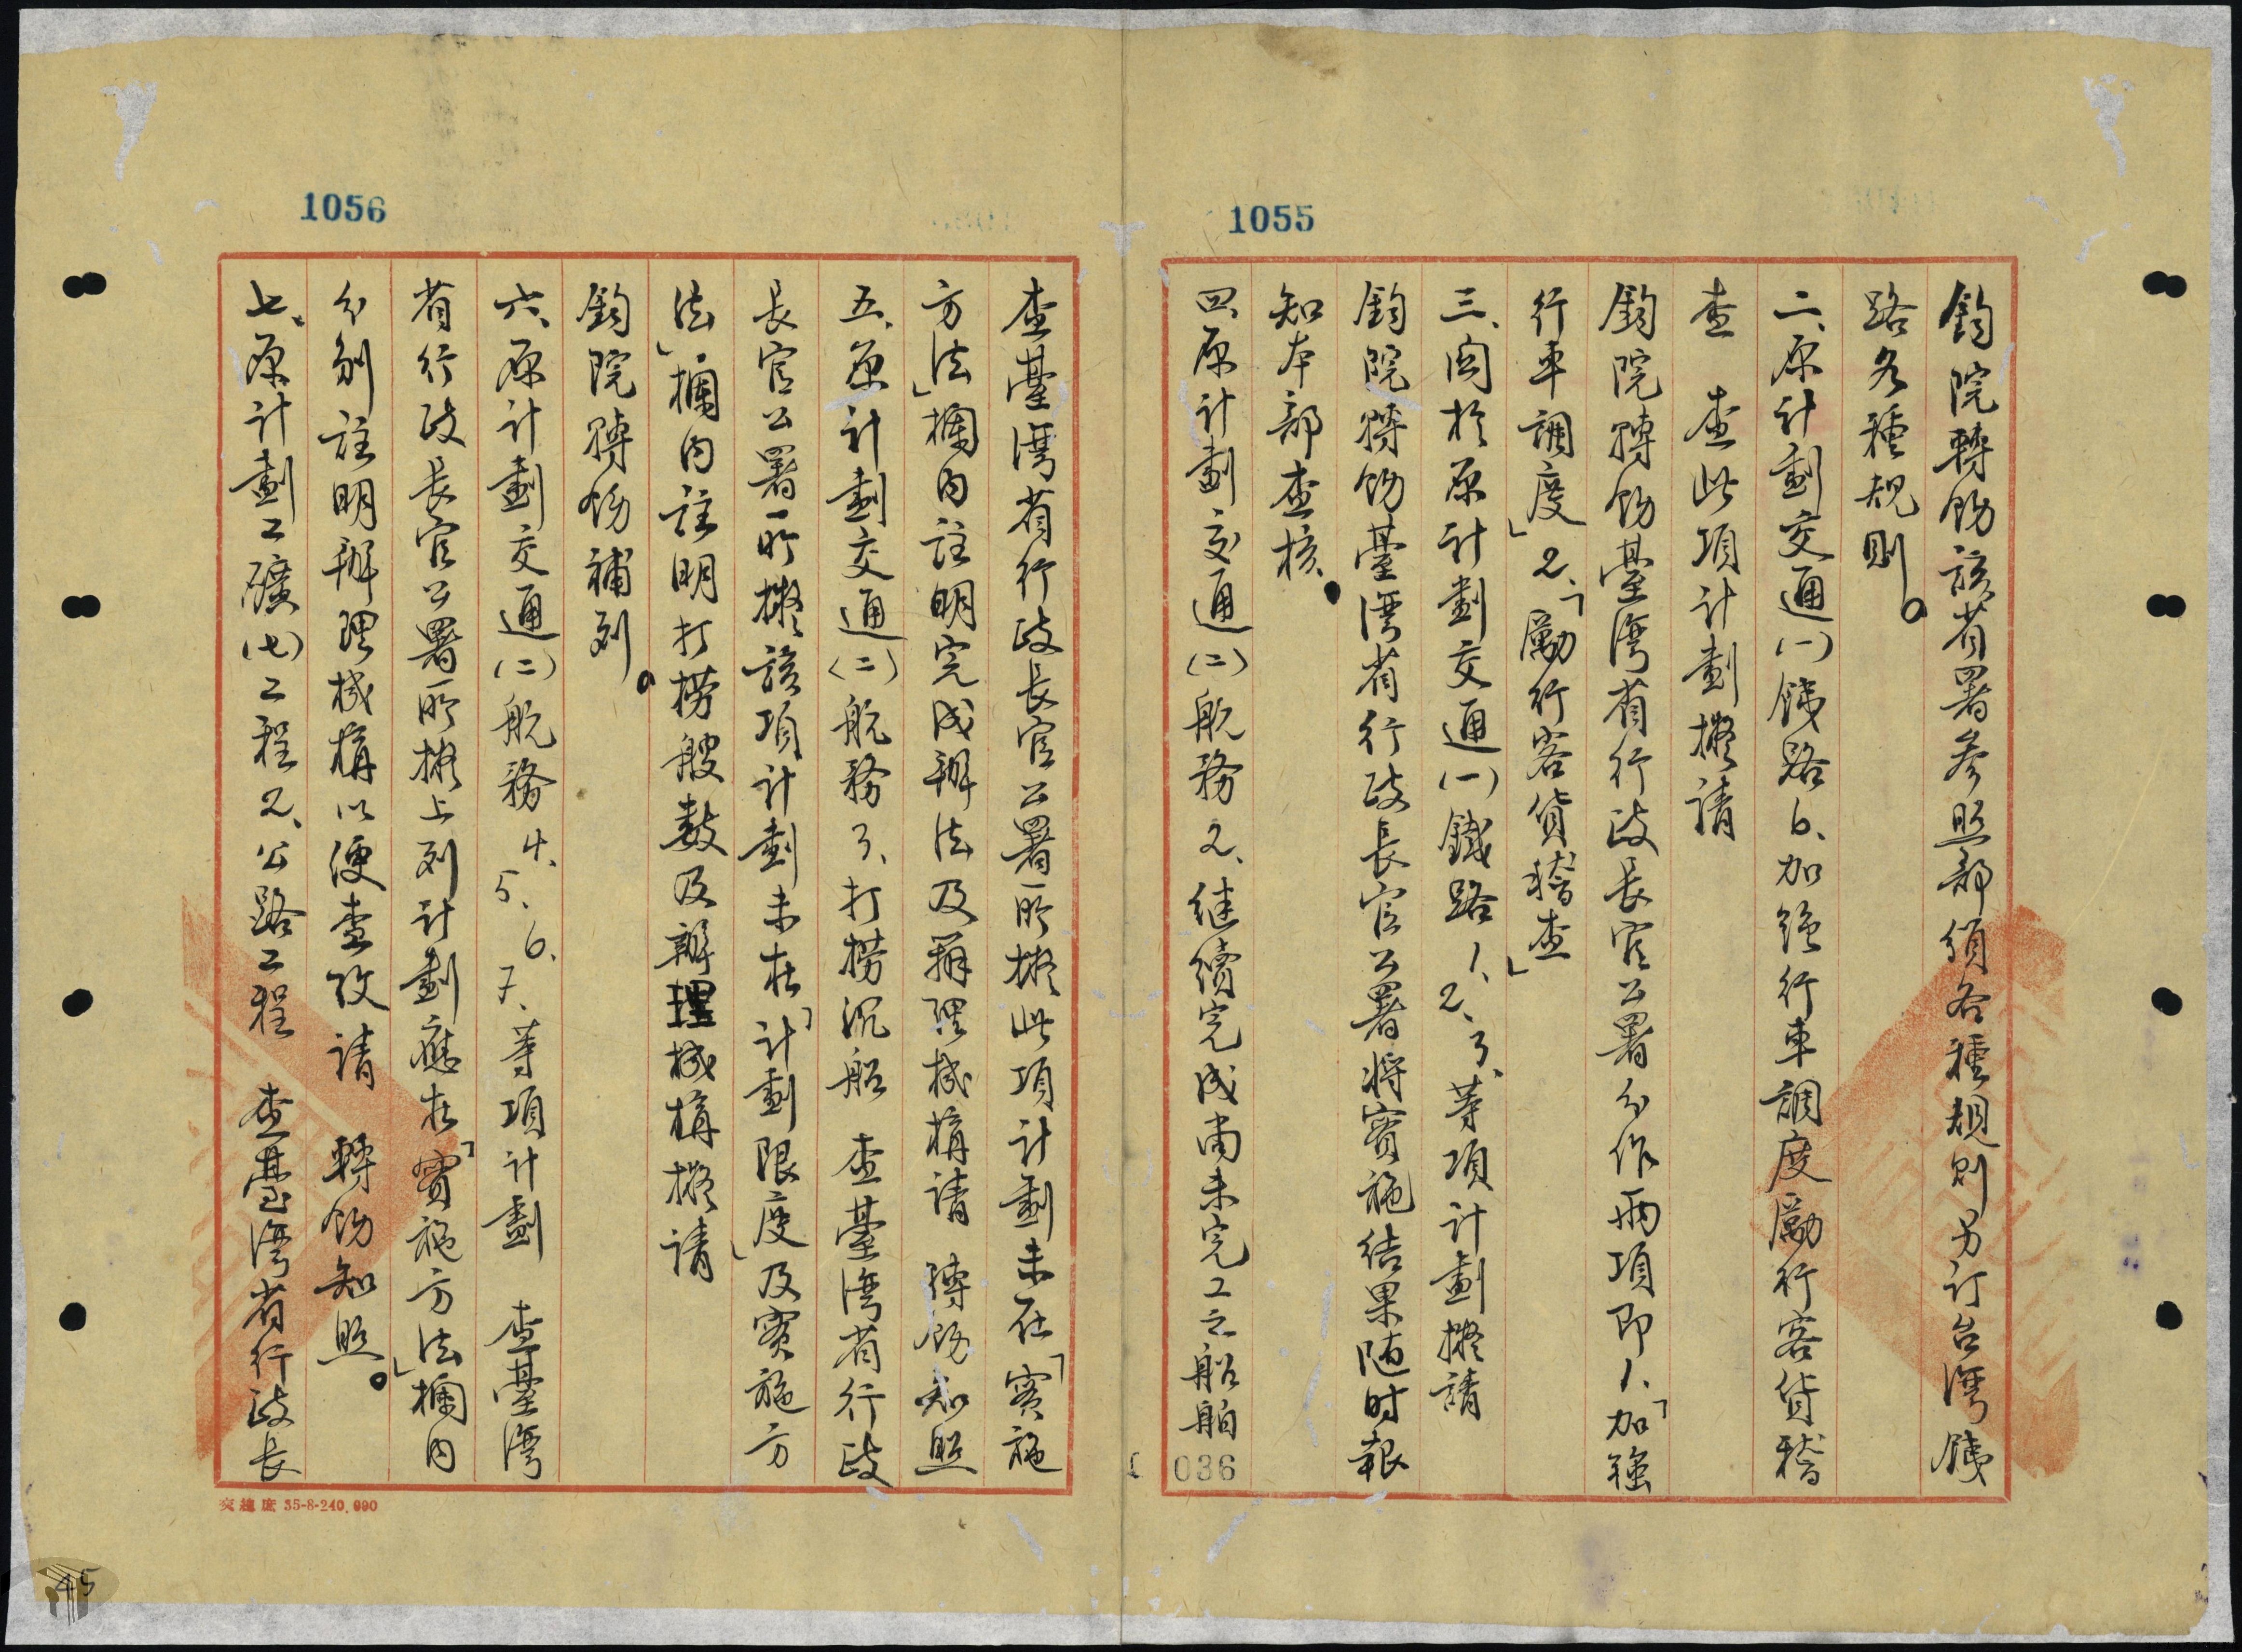 1055
鈞院轉飭該省署參照部頒各種規則另訂台灣鉄
路各種規則。
二、原計劃交通(一)鉄路6、加強行車調度勵行客貨稽
查　查此項計劃擬請
鈞院轉飭臺灣省行政長官公署分作兩項即1、「加強
行車調度」2、「勵行客貨稽查」
三、関於原計劃交通(一)鐵路1、2、3、等項計劃擬請
鈞院轉飭臺灣省行政長官公署將實施結果随时報
知本部查核。
四、原計劃交通(二)航務2、继續完成尚未完工之船舶
036
1056
查臺灣省行政長官公署所擬此項計劃未在「實施
方法」欄内註明完成辦法及辦理機構請　轉飭知照
五、原計劃交通(二)航務3、打撈沉船　查臺灣省行政
長官公署所擬該項計劃未在「計劃限度」及實施方
法」欄内註明打撈艘数及辦理機構擬請
鈞院轉飭補列。
六、原計劃交通(二)航務4、5、6、7、等項計劃　查臺灣
省行政長官公署所擬上列計劃應在「實施方法」欄内
分别註明辦理機構以便查攷請　轉飭知照。
七、原計劃工礦(七)工程2、公路工程　查臺灣省行政長
交總庶 35-8-240,000
45